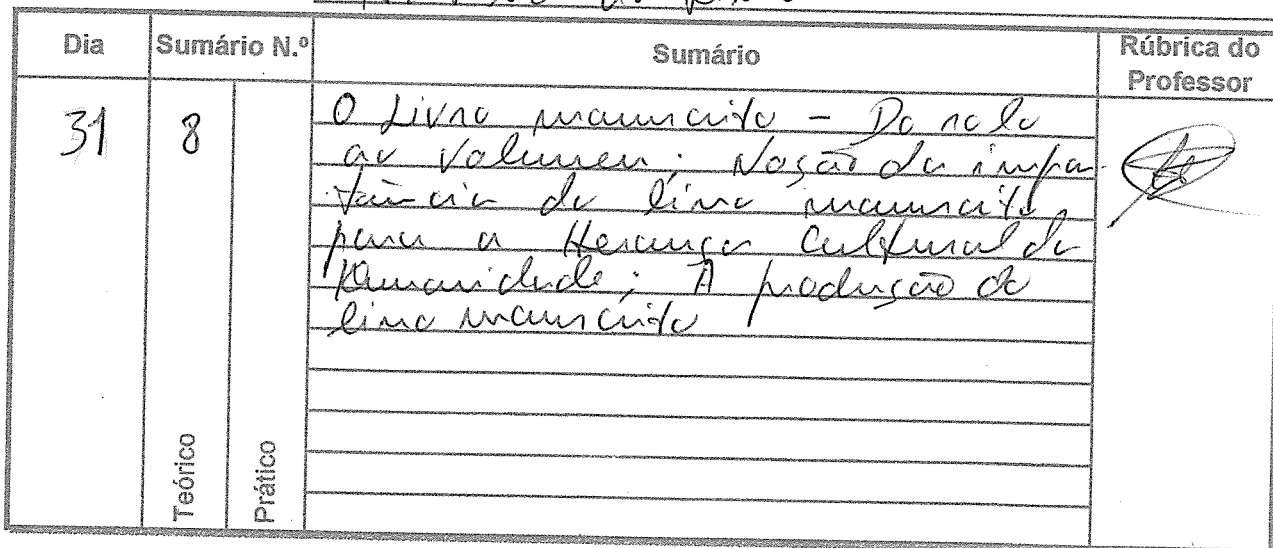 Dia
Sumário N.º
Sumário
Rúbrica do
Professor
31
8
O Livro manuscrito - Do rolo
ao Volumen; Noção da impor-
tância do livro manuscrito
para a Herança Cultural da
Humanidade; A produção do
livro manuscrito
Teórico
Prático